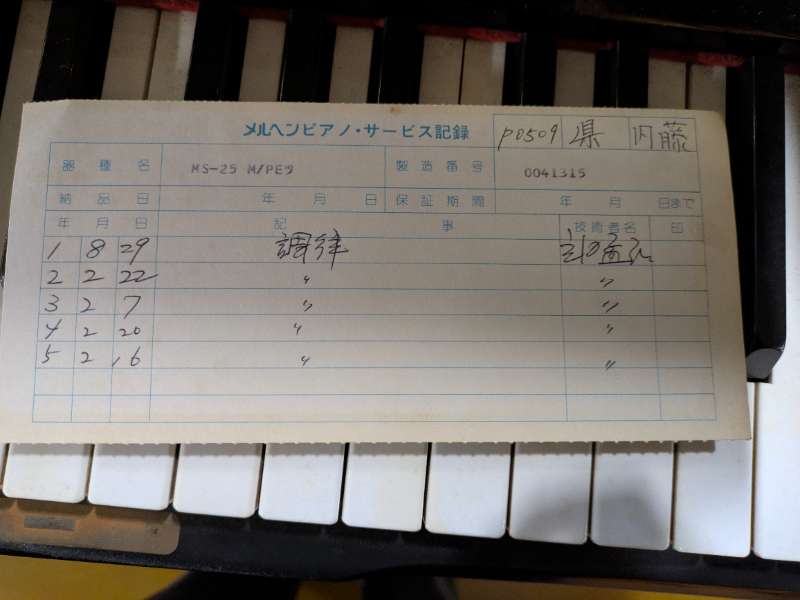 メルヘンピアノ・サービス記録 P0509 県 内藤
器種名 MS-25 M/PEワ 製造番号 0041315
納品日 年 月 日 保証期間 年 月 日まで
年 月 日 記事 技術者名 印
1 8 29 調律
2 2 22 〃 〃
3 2 7 〃 〃
4 2 20 〃 〃
5 2 16 〃 〃